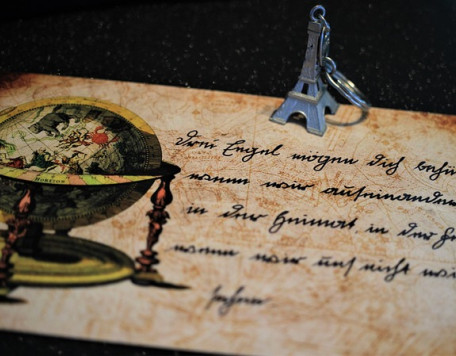 drei Engel mögen dich behü
wenn wir auseinander
in der Heimat in der Fe
wenn wir uns nicht wi
sehen